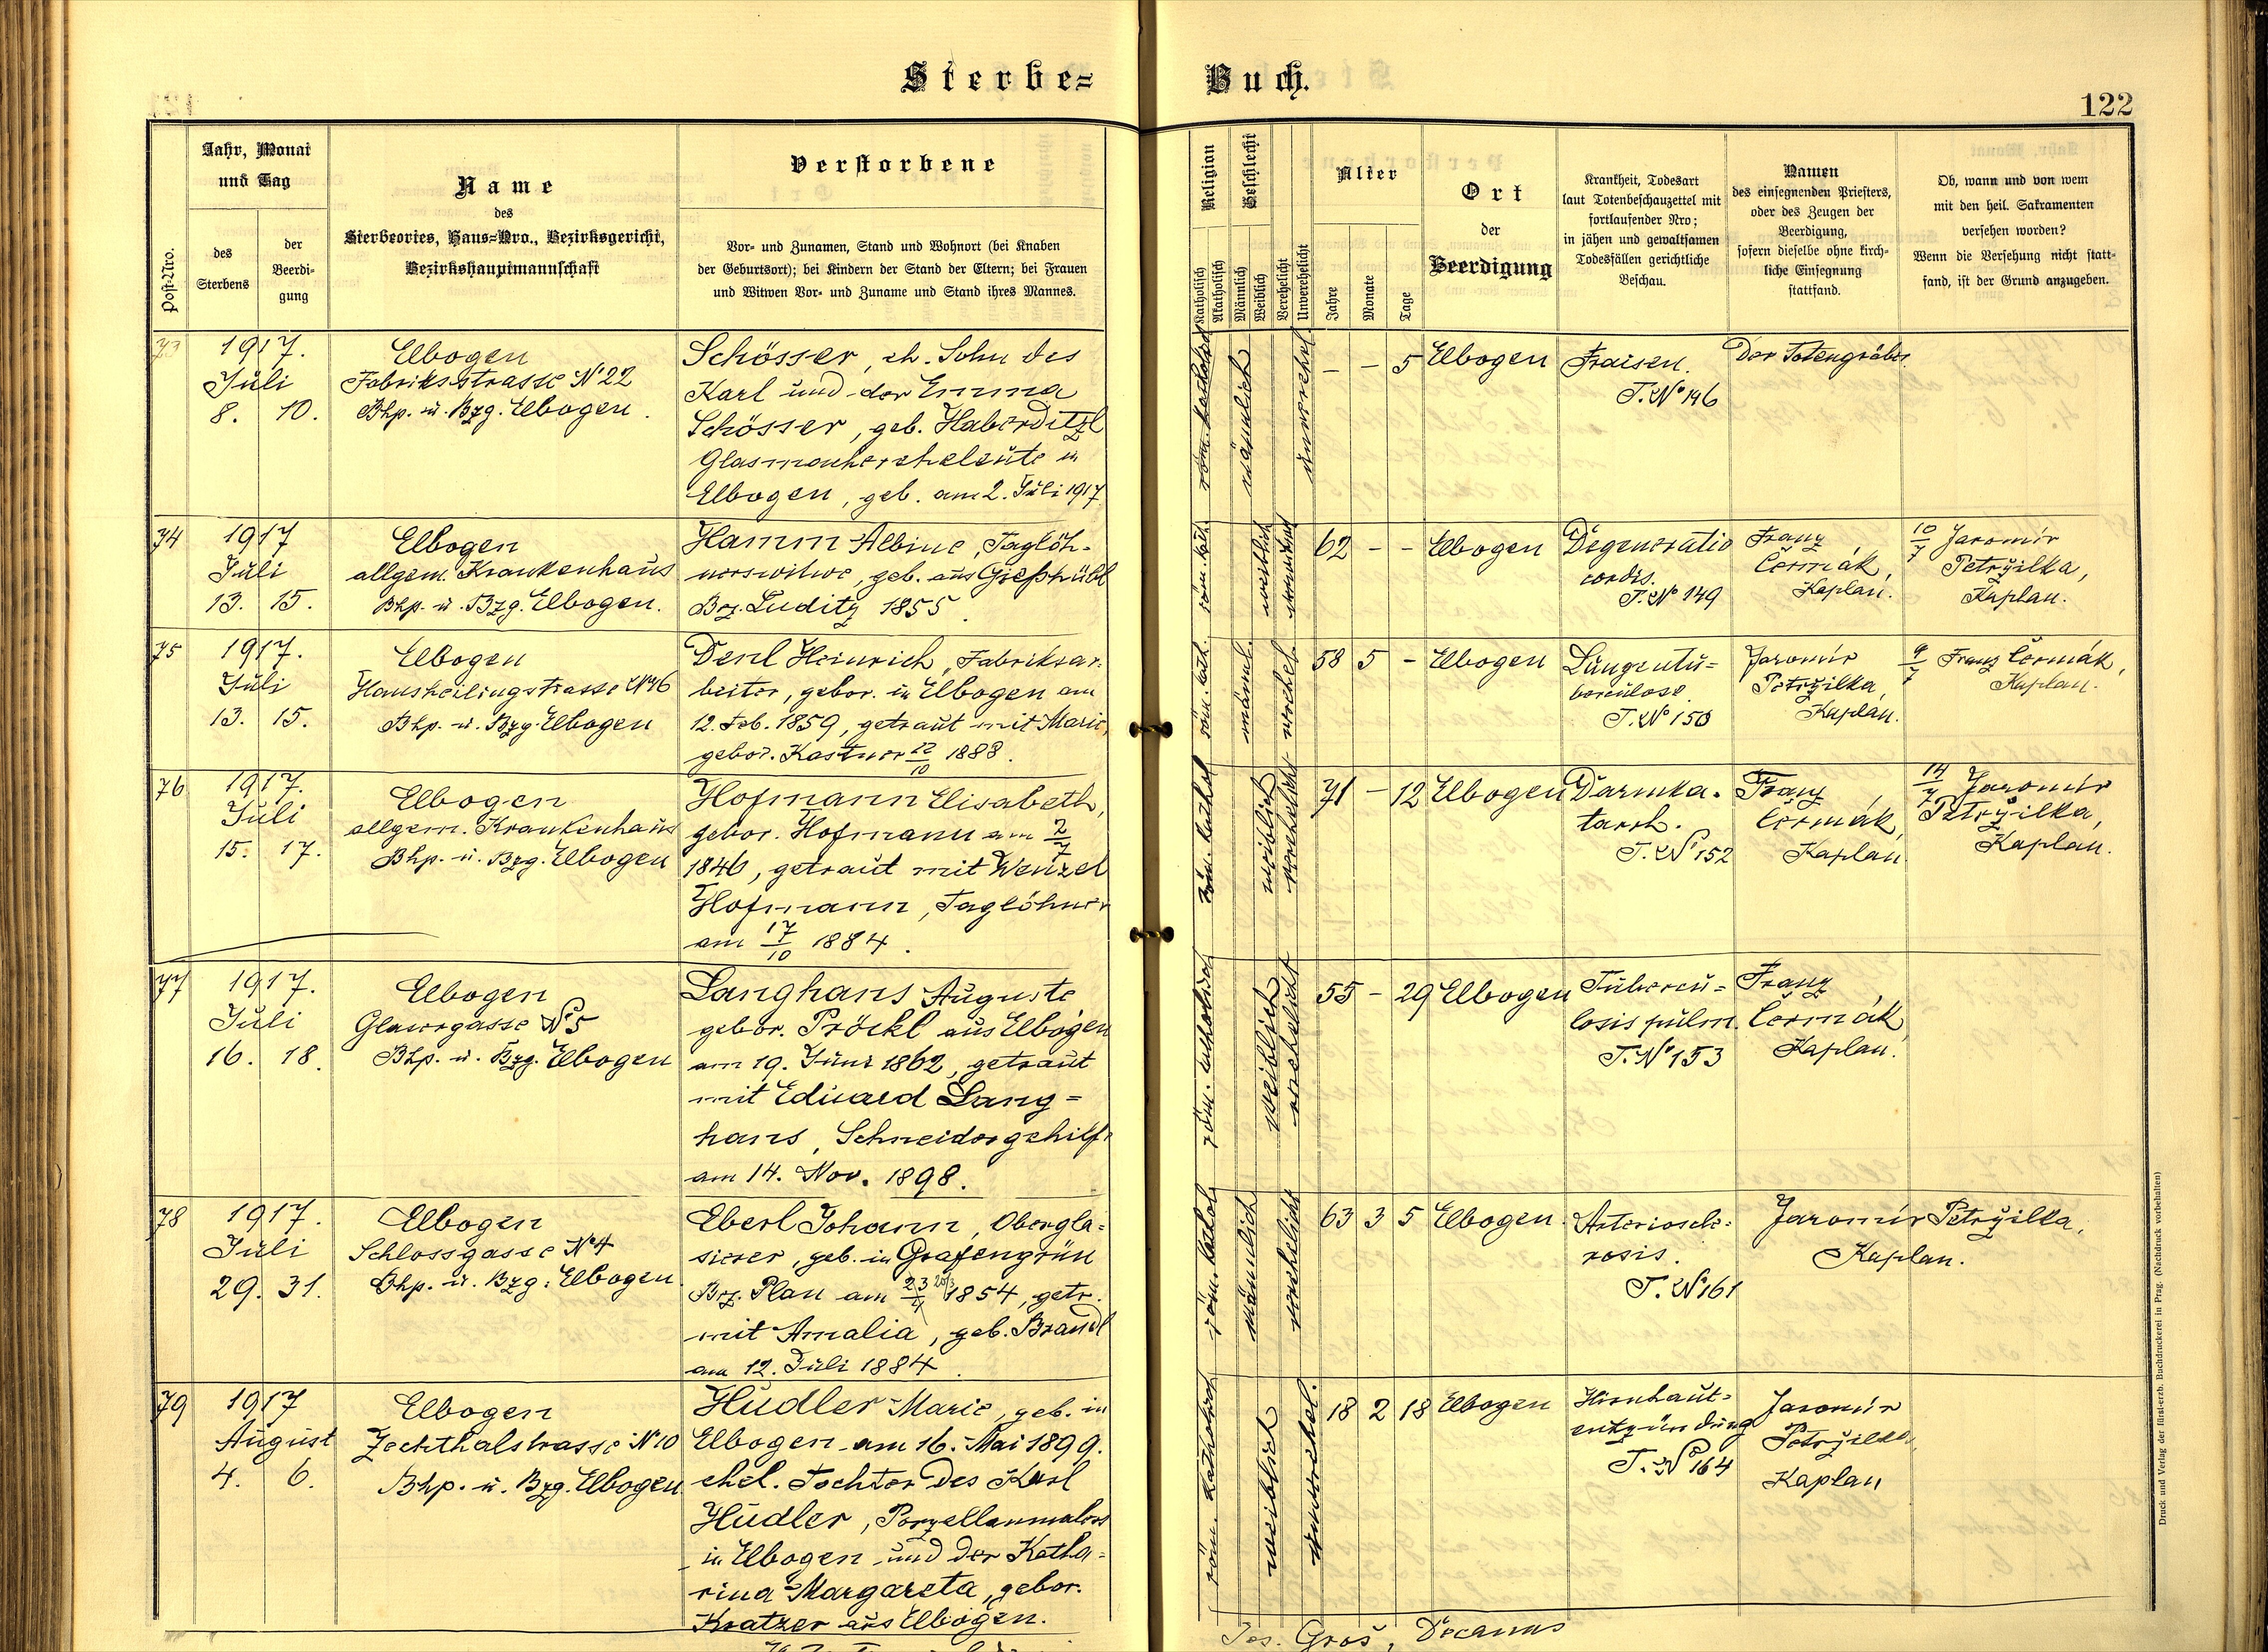 Sterbe= Buch.
122
Post-Nro.
Jahr, Monat
und Tag
des
Sterbens
der
Beerdi-
gung
Name
des
Sterbeortes, Haus-Nro., Bezirksgericht,
Bezirkshauptmannschaft
Verstorbene
Vor- und Zunamen, Stand und Wohnort (bei Knaben
der Geburtsort); bei Kindern der Stand der Eltern; bei Frauen
und Witwen Vor- und Zuname und Stand ihres Mannes.
Religion
Katholisch
Akatholisch
Geschlecht
Männlich
Weiblich
Verehelicht
Unverehelicht
Alter
Jahre
Monate
Tage
Ort
der
Beerdigung
Krankheit, Todesart
laut Totenbeschauzettel mit
fortlaufender Nro;
in jähen und gewaltsamen
Todesfällen gerichtliche
Beschau.
Namen
des einsegnenden Priesters,
oder des Zeugen der
Beerdigung,
sofern dieselbe ohne kirch-
liche Einsegnung
stattfand.
Ob, wann und von wem
mit den heil. Sakramenten
versehen worden?
Wenn die Versehung nicht statt-
fand, ist der Grund anzugeben.
73
1917.
Juli
8. 10.
Elbogen
Fabriksstrasse No 22
Bhp. u. Bzg. Elbogen.
Schösser, eh. Sohn des
Karl und der Emma
Schösser, geb. Haberditzl
Glasmachereheleute in
Elbogen, geb. am 2. Juli 1917
röm. katholisch
männlich
unverehel
- - 5
Elbogen
Fraisen.
T. No 146
Der Totengräber
74
1917
Juli
13. 15.
Elbogen
allgem. Krankenhaus
Bhp. u. Bzg. Elbogen.
Hamm Albine, Taglöh-
nerswitwe, geb. aus Gießhübl
Bz. Luditz 1855.
röm. kath.
weiblich
verwitwet
62 - -
Elbogen
Degeneratio
cordis.
T. No 149
Franz
Čermák,
Kaplan.
10/7 Jaromír
Petržilka,
Kaplan.
75
1917.
Juli
13. 15.
Elbogen
Hansheilingstrasse No 46
Bhp. u. Bzg. Elbogen
Denl Heinrich, Fabriksar-
beiter, gebor. in Elbogen am
12. Feb. 1859, getraut mit Marie,
gebor. Kastner 22/10 1883.
röm. kath.
männl.
verehel.
58 5 -
Elbogen
Lungentu=
berculose.
T. No 150
Jaromír
Petržilka,
Kaplan.
9/7 Franz Čermák,
Kaplan.
76
1917.
Juli
15. 17.
Elbogen
allgem. Krankenhaus
Bhp. u. Bzg. Elbogen
Hofmann Elisabeth,
gebor. Hofmann am 2/7
1846, getraut mit Wenzel
Hofmann, Taglöhner
am 17/10 1884.
röm. kathol
weiblich
verehelicht
71 - 12
Elbogen
Darmka-
tarrh.
T. No 152
Franz
Čermák,
Kaplan
14/7 Jaromír
Petržilka,
Kaplan.
77
1917.
Juli
16. 18.
Elbogen
Glasergasse No 5
Bhp. u. Bzg. Elbogen
Langhans Auguste
gebor. Pröckl aus Elbogen
am 19. Juni 1862, getraut
mit Eduard Lang=
hans, Schneidergehilfe
am 14. Nov. 1898.
röm. katholisch
weiblich
verehelicht
55 - 29
Elbogen
Tubercu=
losis pulm.
T. No 153
Franz
Čermák,
Kaplan.
78
1917.
Juli
29. 31.
Elbogen
Schlossgasse No 4
Bhp. u. Bzg. Elbogen.
Eberl Johann, Obergla=
sierer, geb. in Grafengrün
Bz. Plan am 23/4 1854, getr.
mit Amalia, geb. Brandl
am 12. Juli 1884.
röm. kathol
männlich
verehelicht
63 3 5
Elbogen.
Arteriosele=
rosis.
T. No 161
Jaromír Petržilka,
Kaplan.
79
1917
August
4. 6.
Elbogen
Zechthalstrasse No 10
Bhp. u. Bzg. Elbogen
Hudler Marie, geb. in
Elbogen am 16. Mai 1899.
ehel. Tochter des Karl
Hudler, Porzellanmalers
in Elbogen und der Katha=
rina Margareta, gebor.
Kratzer aus Elbogen.
röm. katholisch
weiblich
unverehel.
18 2 18
Elbogen
Hirnhaut=
entzündung
T. No 164
Jaromír
Petržilka
Kaplan
Jos. Groš, Decanus
Druck und Verlag der fürst-erzb. Buchdruckerei in Prag. (Nachdruck vorbehalten)